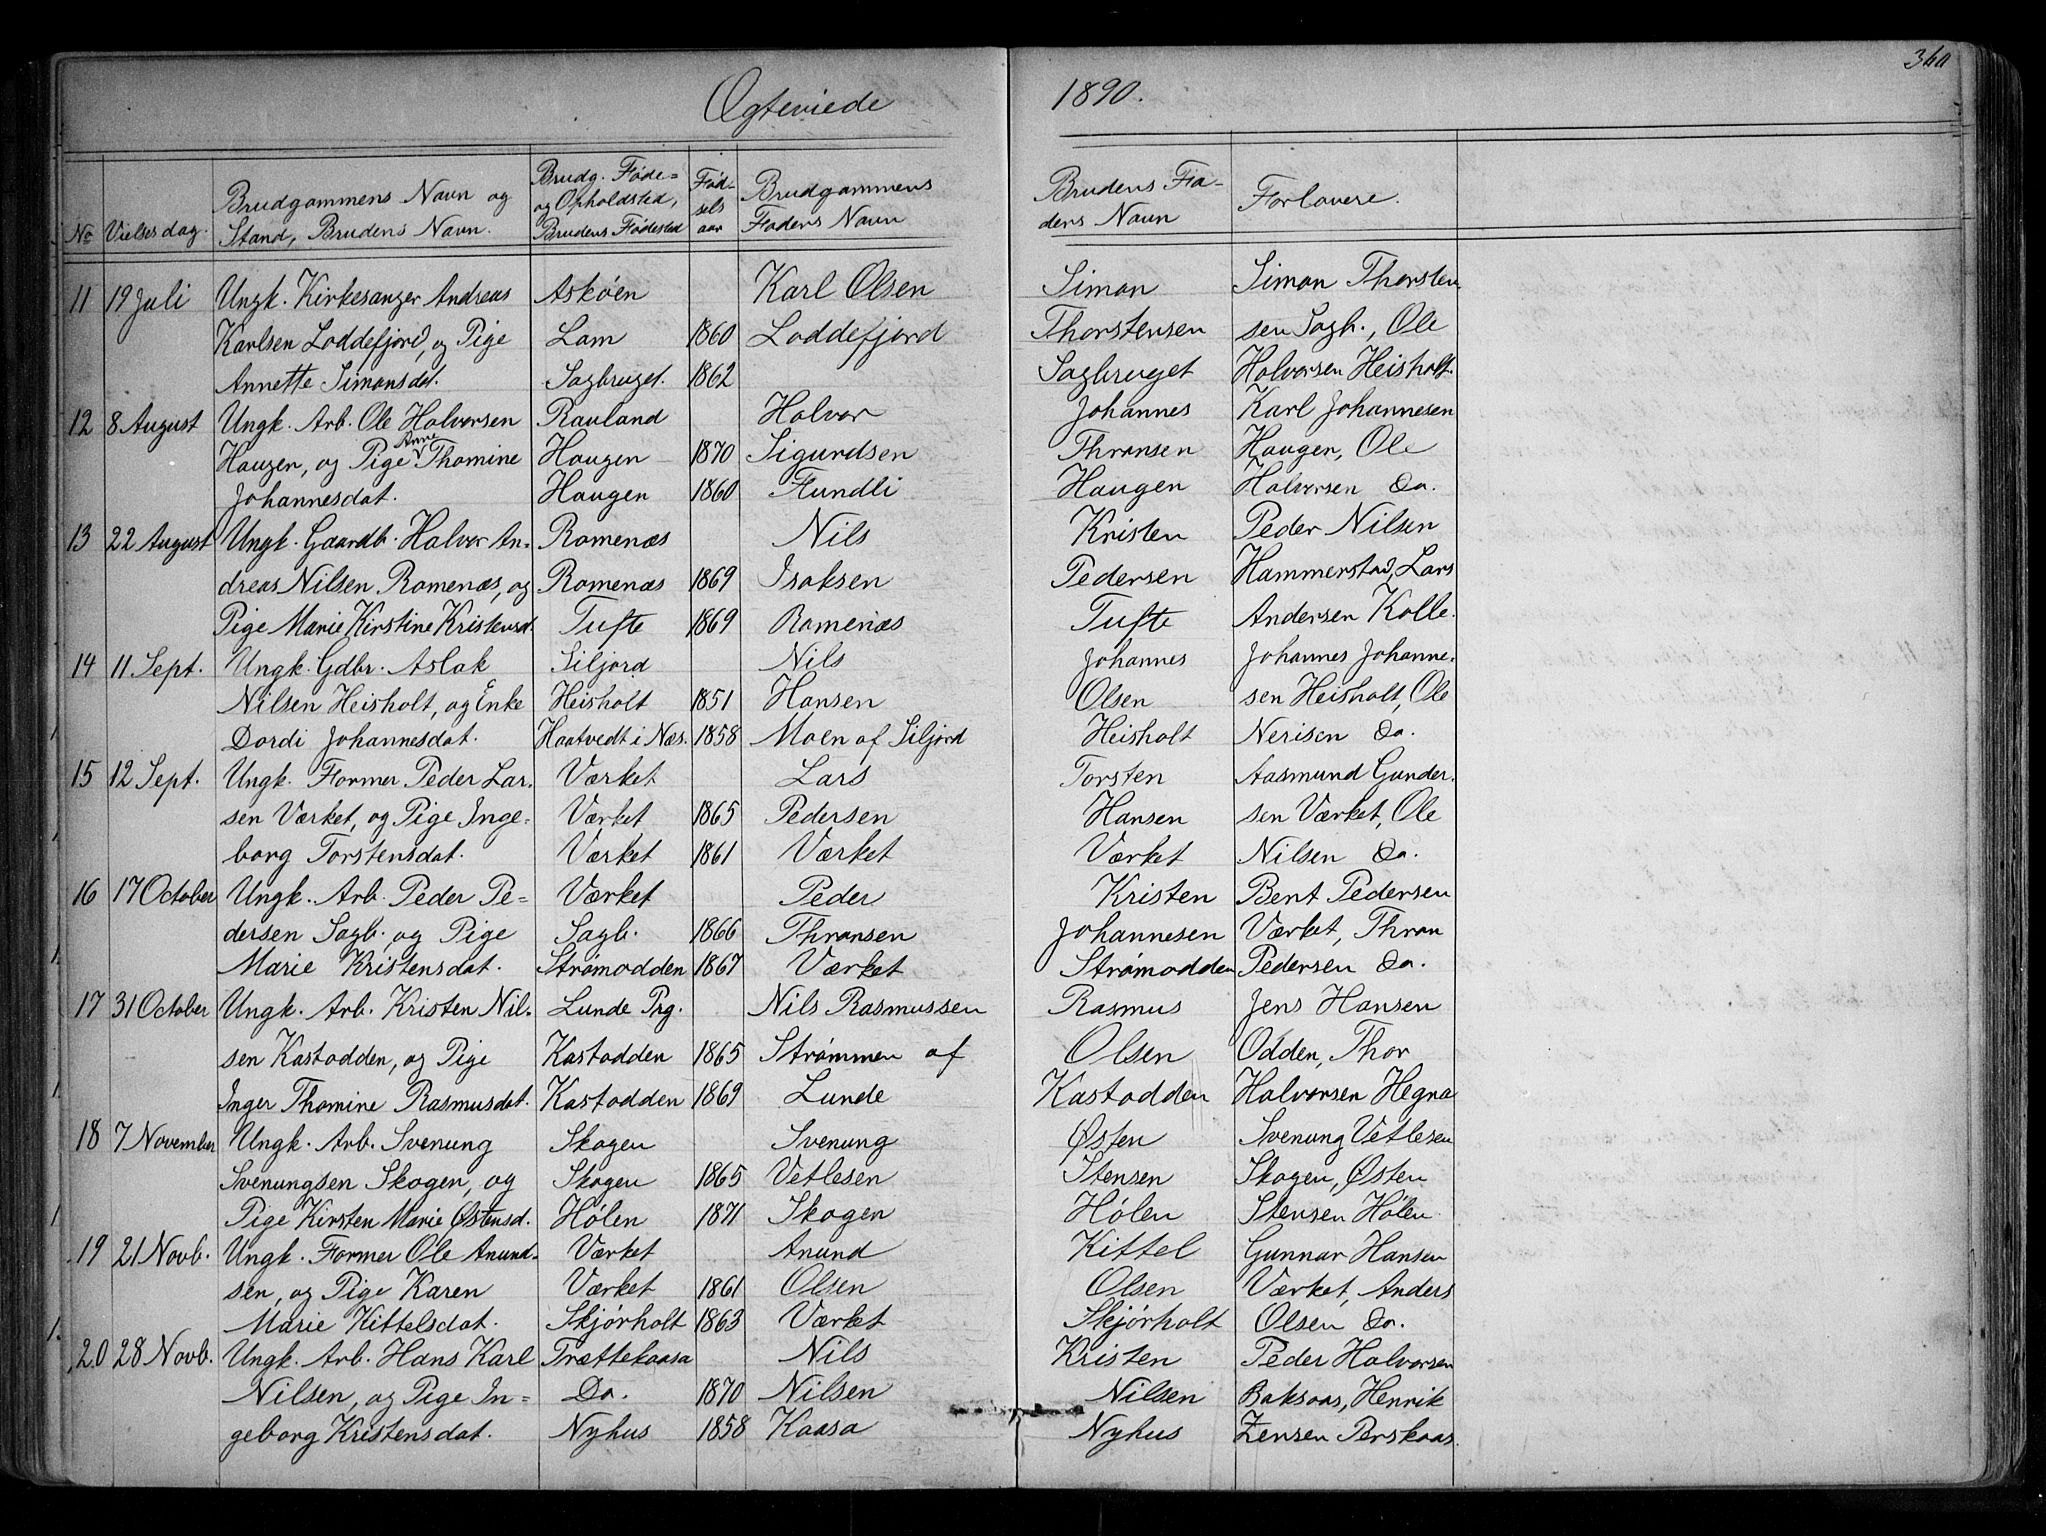 360
Ægteviede 1890.
No Vielsesdag. Brudgommens Navn og Stand, Brudens Navn. Brudg. Føde= og Opholdsted, Brudens Fødested Fødselsaar Brudgommens Faders Navn Brudens Faders Navn Forlovere.
11 19 Juli Ungk. Kirkesanger Andreas Askøen Karl Olsen Simon Simon Thorsten-
Karlsen Loddefjord, og Pige Lam 1860 Loddefjord Thorstensen sen Sagb., Ole
Annette Simonsdat. Sagbruget. 1862 Sagbruget Halvorsen Heisholt.
12 8 August Ungk. Arb. Ole Halvorsen Rauland Halvor Johannes Karl Johannesen
Haugen, og Pige Anne Thomine Haugen 1870 Sigurdsen Thronsen Haugen, Ole
Johannesdat. Haugen 1860 Flundli Haugen Halvorsen Do.
13 22 August Ungk. Gaardb. Halvor An- Romenæs Nils Kristen Peder Nilsen
dreas Nilsen Romenæs, og Romenæs 1869 Isaksen Pedersen Hammerstad, Lars
Pige Marie Kirstine Kristensd. Tufte 1869 Romenæs Tufte Andersen Kolle.
14 11 Sept. Ungk. Gdbr. Aslak Siljord Nils Johannes Johannes Johanne-
Nilsen Heisholt, og Enke Heisholt 1851 Hansen Olsen sen Heisholt, Ole
Dordi Johannesdat. Haatvedt i Næs. 1858 Moen af Siljord Heisholt Nerison Do.
15 12 Sept. Ungk. Former Peder Lar- Værket Lars Torsten Aasmund Gunder-
sen Værket, og Pige Inge= Værket 1865 Pedersen Hansen sen Værket, Ole
borg Torstensdat. Værket 1861 Værket Værket Nilsen Do.
16 17 October Ungk. Arb. Peder Pe= Værket Peder Kristen Bent Pedersen
dersen Sagb., og Pige Sagb. 1866 Thronsen Johannesen Værket, Thron
Marie Kristensdat. Strømodden 1867 Værket Strømodden Pedersen Do.
17 31 October Ungk. Arb. Kristen Nil- Lunde Prg. Nils Rasmussen Rasmus Jens Hansen
sen Kastodden, og Pige Kastodden 1865 Strømmen af Olsen Odden, Thor
Inger Thomine Rasmusdat. Kastodden 1869 Lunde Kastodden Halvorsen Hegna
18 7 November Ungk. Arb. Svenung Skogen Svenung Østen Svenung Vetlesen
Svenungsen Skogen, og Skogen 1865 Vetlesen Stensen Skogen, Østen
Pige Kirsten Marie Østensd. Hølen 1871 Skogen Hølen Stensen Hølen
19 21 Novb. Ungk. Former Ole Anund- Værket Anund Kittel Gunnar Hansen
sen, og Pige Karen Værket 1861 Olsen Olsen Værket, Anders
Marie Kittelsdat. Skjørholt 1863 Værket Skjørholt Olsen Do.
20 28 Novb. Ungk. Arb. Hans Karl Trættekaasa Nils Kristen Peder Halvorsen
Nilsen, og Pige In= Do. 1870 Nilsen Nilsen Baksaas, Henrik
geborg Kristensdat. Nyhus 1858 Kaasa Nyhus Zensen Perskaas.